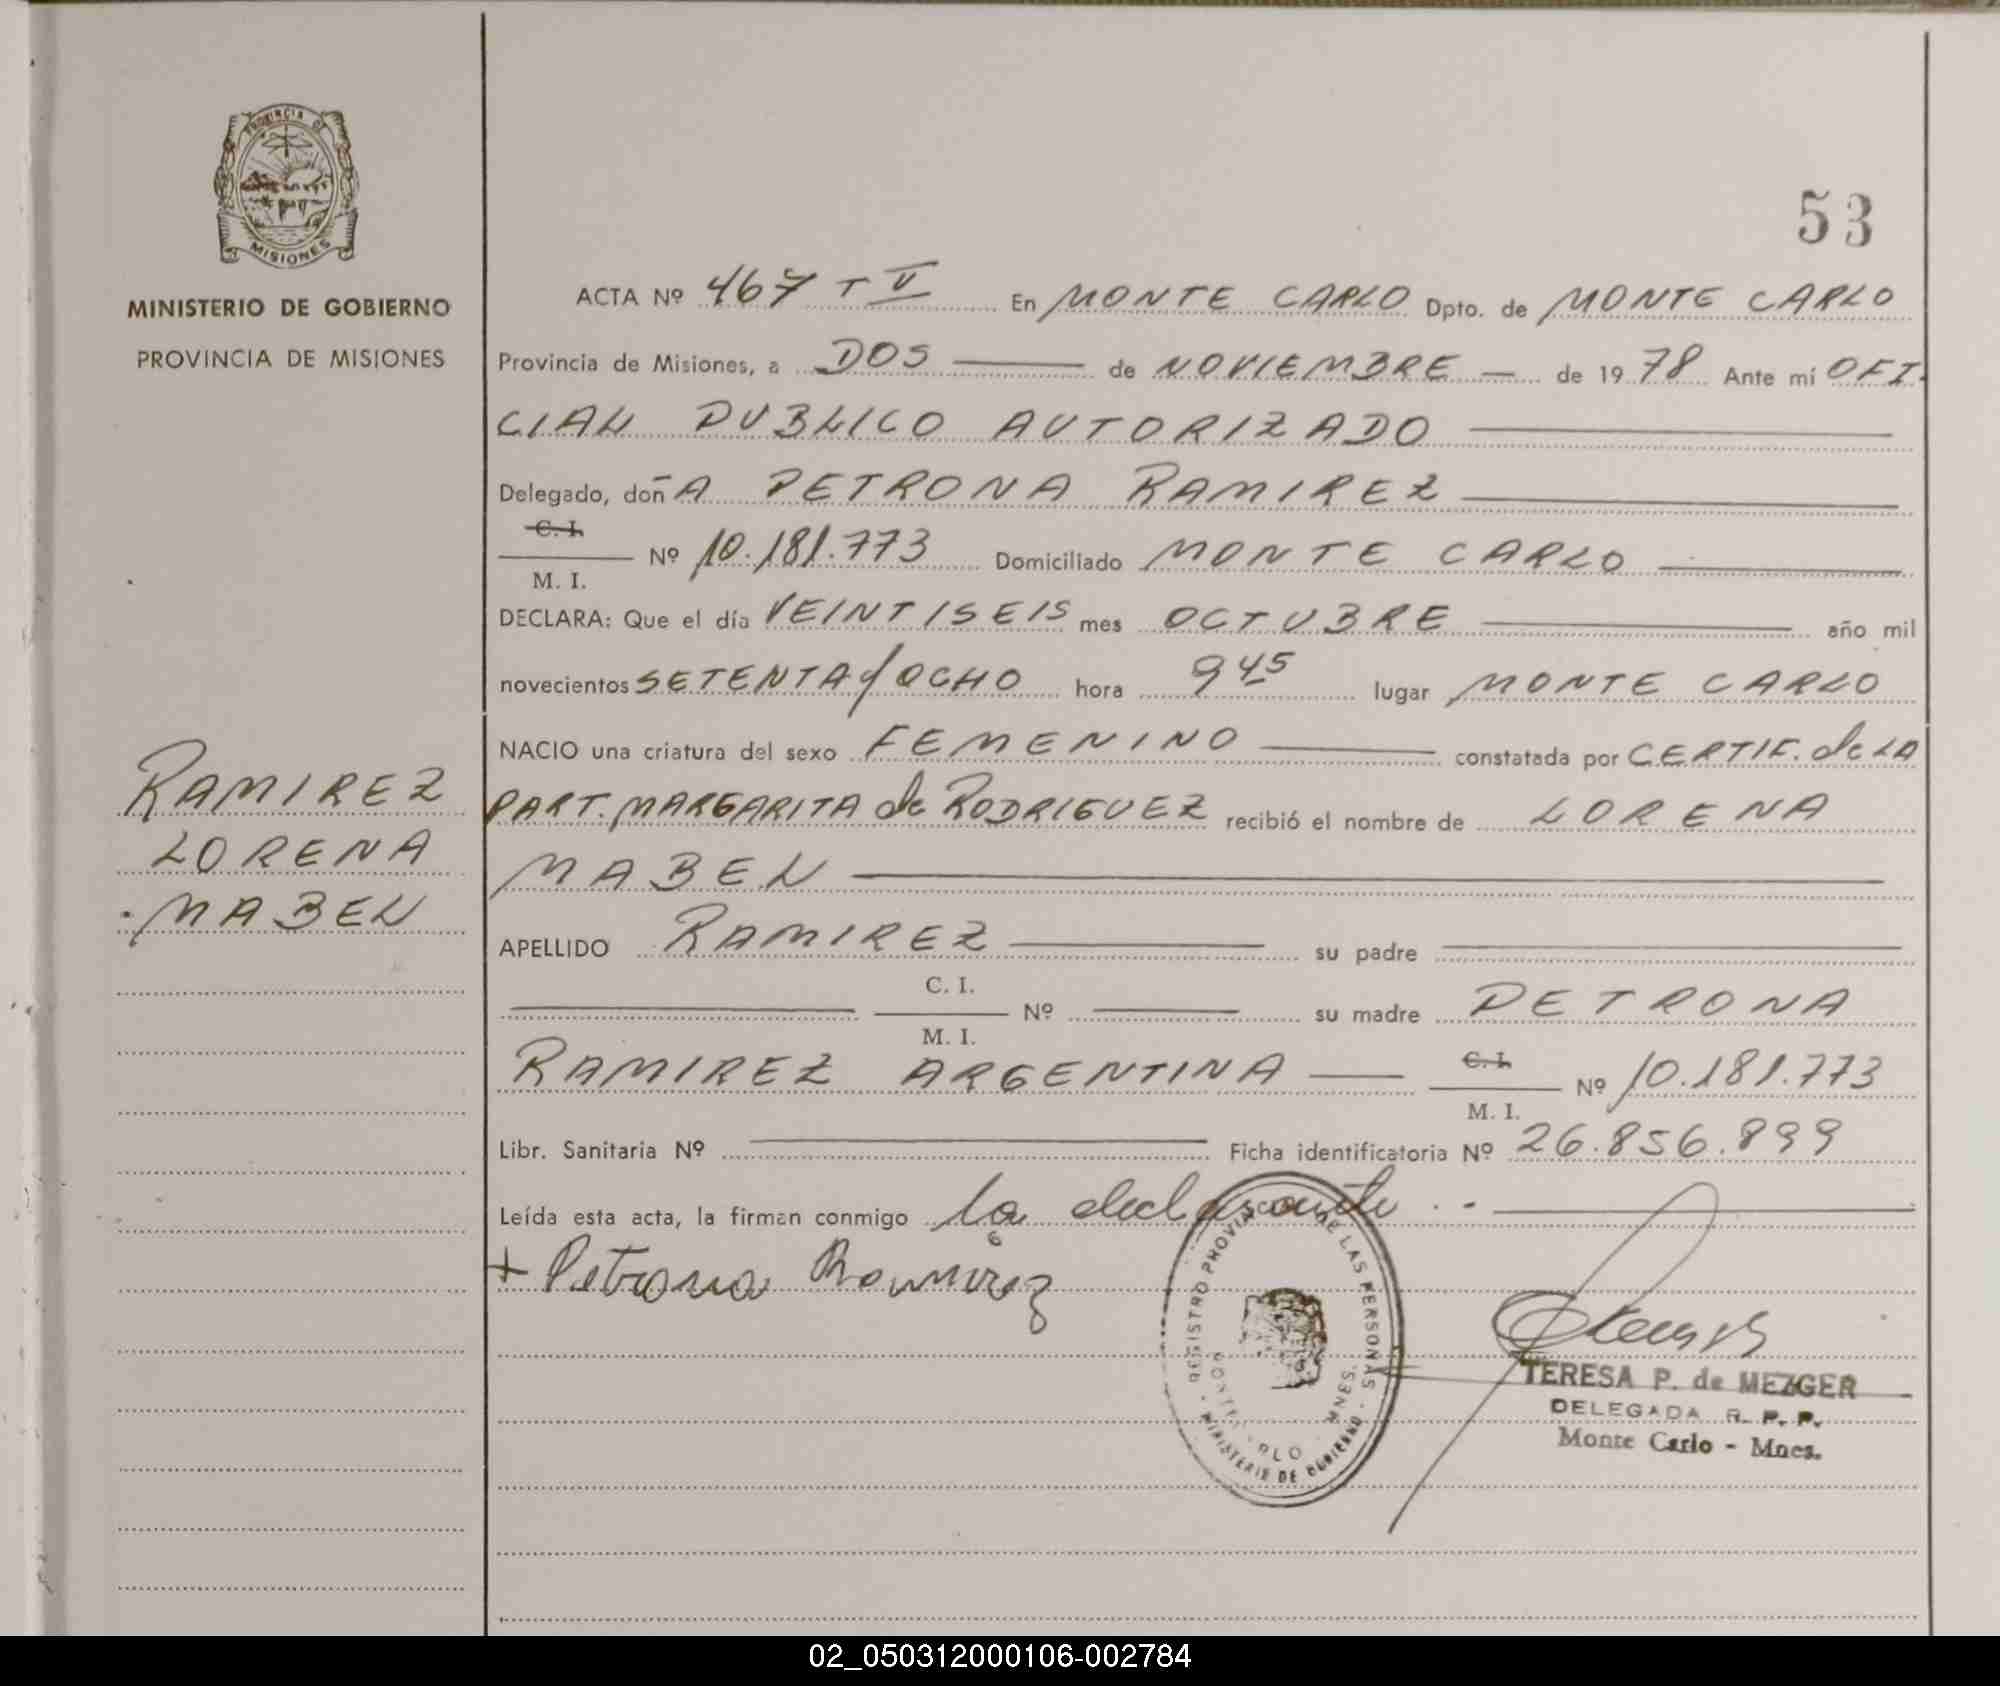 PROVINCIA DE
MISIONES
MINISTERIO DE GOBIERNO
PROVINCIA DE MISIONES
RAMIREZ
LORENA
MABEL
53
ACTA Nº 467 T V En MONTE CARLO Dpto. de MONTE CARLO
Provincia de Misiones, a DOS de NOVIEMBRE de 1978 Ante mí OFI-
CIAL PUBLICO AUTORIZADO
Delegado, doñA PETRONA RAMIREZ
C. I.
Nº 10.181.773 Domiciliado MONTE CARLO
M. I.
DECLARA: Que el día VEINTISEIS mes OCTUBRE año mil
novecientos SETENTA y OCHO hora 9 45 lugar MONTE CARLO
NACIO una criatura del sexo FEMENINO constatada por CERTIF. de LA
PART. MARGARITA de RODRIGUEZ recibió el nombre de LORENA
MABEL
APELLIDO RAMIREZ su padre
C. I.
Nº su madre PETRONA
M. I.
RAMIREZ ARGENTINA C. I. Nº 10.181.773
M. I.
Libr. Sanitaria Nº Ficha identificatoria Nº 26.856.899
Leída esta acta, la firman conmigo la declarante.-
+ Petrona Ramirez
REGISTRO PROVINCIAL DE LAS PERSONAS
MONTE CARLO - MNES.
MINISTERIO DE GOBIERNO
TERESA P. de MEZGER
DELEGADA R. P. P.
Monte Carlo - Mnes.
02_050312000106-002784